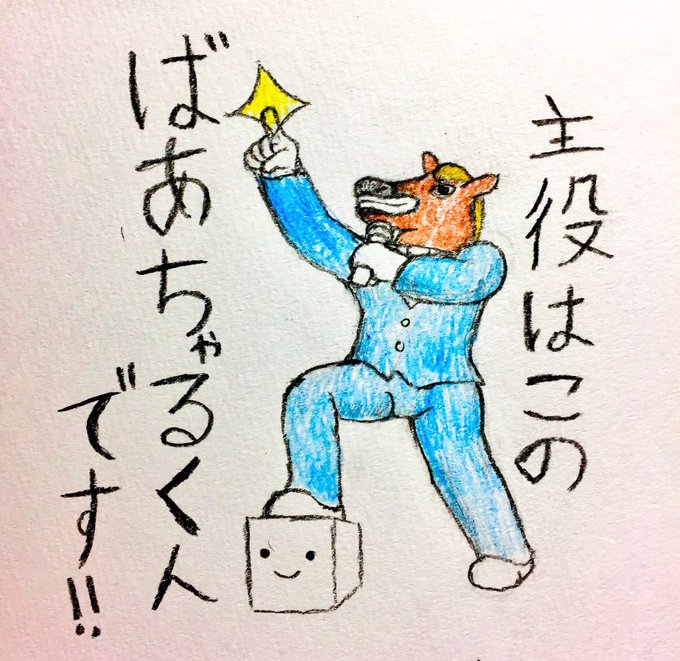 主役はこの
ばあちゃるくん
です!!